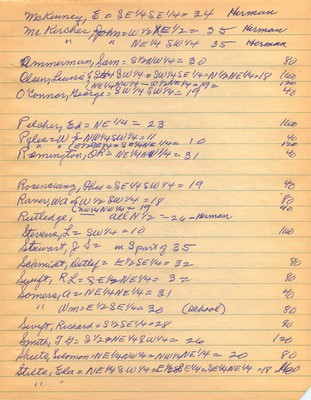 McKinney, E = SE¼SE¼ = 34 Herman
McKircher, John = W½SE½ = 35 Herman
" " NE¼SW¼ 35 Herman
Ammerman, Sam = S½NW¼ = 30 80
Olsen, Louis = SW¼SE¼ = N½NE¼ = 18 160
(NE¼NW¼ - W½NE¼ = 19
O'Connor, George = SW¼SW¼ = 19 40
Pilcher, Ed = NE¼ = 23 160
Pyles = W J = NW¼SW¼ = 11 40
" " E½SE¼ = SE¼NE¼ = 10 120
Remington, OR = NE¼NW¼ = 31 40
Rosencranz, = SE¼SW¼ = 19 40
Raner, WA = W½SW¼ = 18 80
(NE¼NE¼ = 19 40
Rutledge, all N½ = 26 - Herman
Stevens, L = SW¼ = 10 160
Stewart, J S = in S part of 35
Schmidt, Detlef = E½SE¼ = 32 80
Swift, R L = S½NE¼ = 32 80
Somers, A = NE¼NE¼ = 31 40
" Wm = E½SE¼ = 30 (School) 80
Swift, Richard = S½SE¼ = 28 80
Smith, T G = S½ NW¼SW¼ = 26 120
Sheets, Solomon = NE¼NW¼ = NW¼NE¼ = 20 80
Stilts, Ela = NE¼SW¼ = E½SE¼ = SE¼NE¼ = 18 160
" "